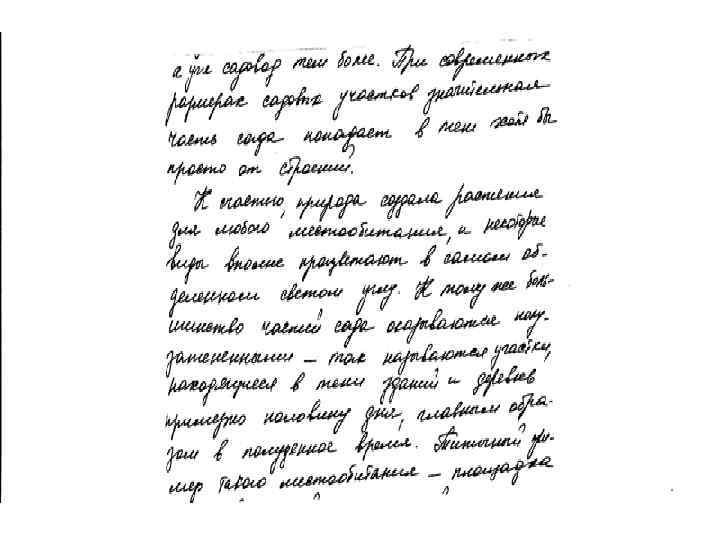 а уж садовод тем более. При современных
размерах садовых участков значительная
часть сада попадает в тени хотя бы
просто от строений.
К счастью, природа создала растения
для любого местообитания, и некоторые
виды вполне процветают в самом об-
деленном светом углу. К тому же боль-
шинство частей сада оказываются полу-
затененными – так называются участки,
находящиеся в тени зданий и деревьев
примерно половину дня, главным обра-
зом в полуденное время. Типичный при-
мер такого местообитания – площадка